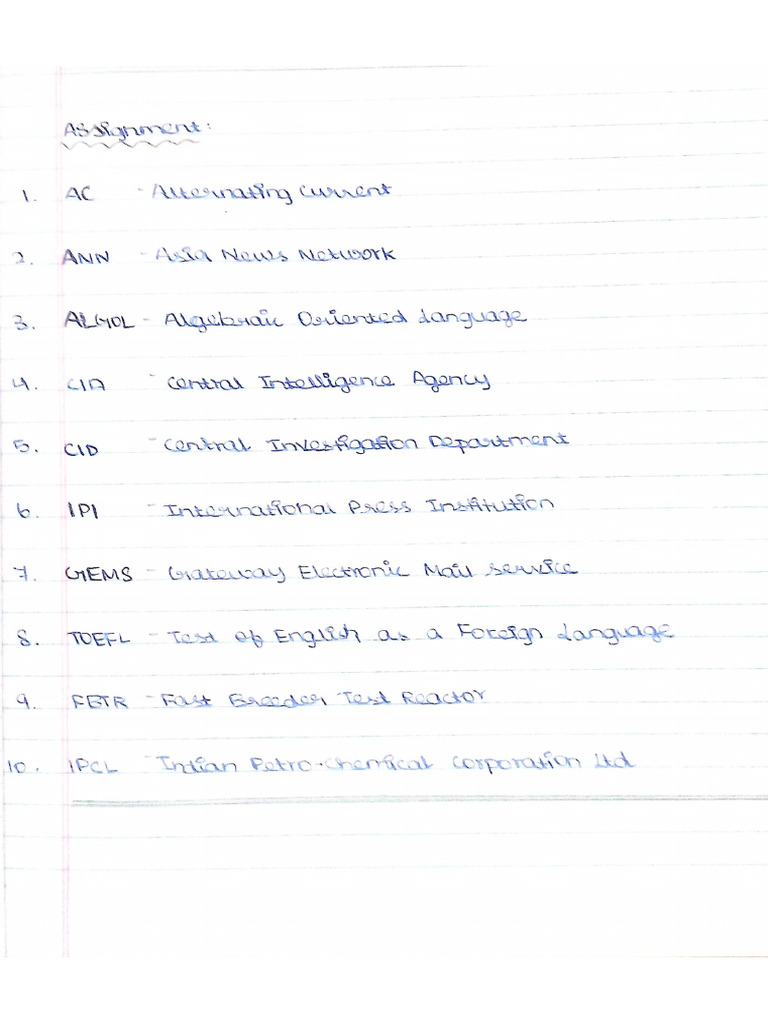 Assignment:
1. AC - Alternating Current
2. ANN - Asia News Network
3. ALGOL - Algebraic Oriented Language
4. CIA - Central Intelligence Agency
5. CID - Central Investigation Department
6. IPI - International Press Institution
7. GEMS - Gateway Electronic Mail service
8. TOEFL - Test of English as a Foreign Language
9. FBTR - Fast Breeder Test Reactor
10. IPCL - Indian Petro-Chemical Corporation Ltd